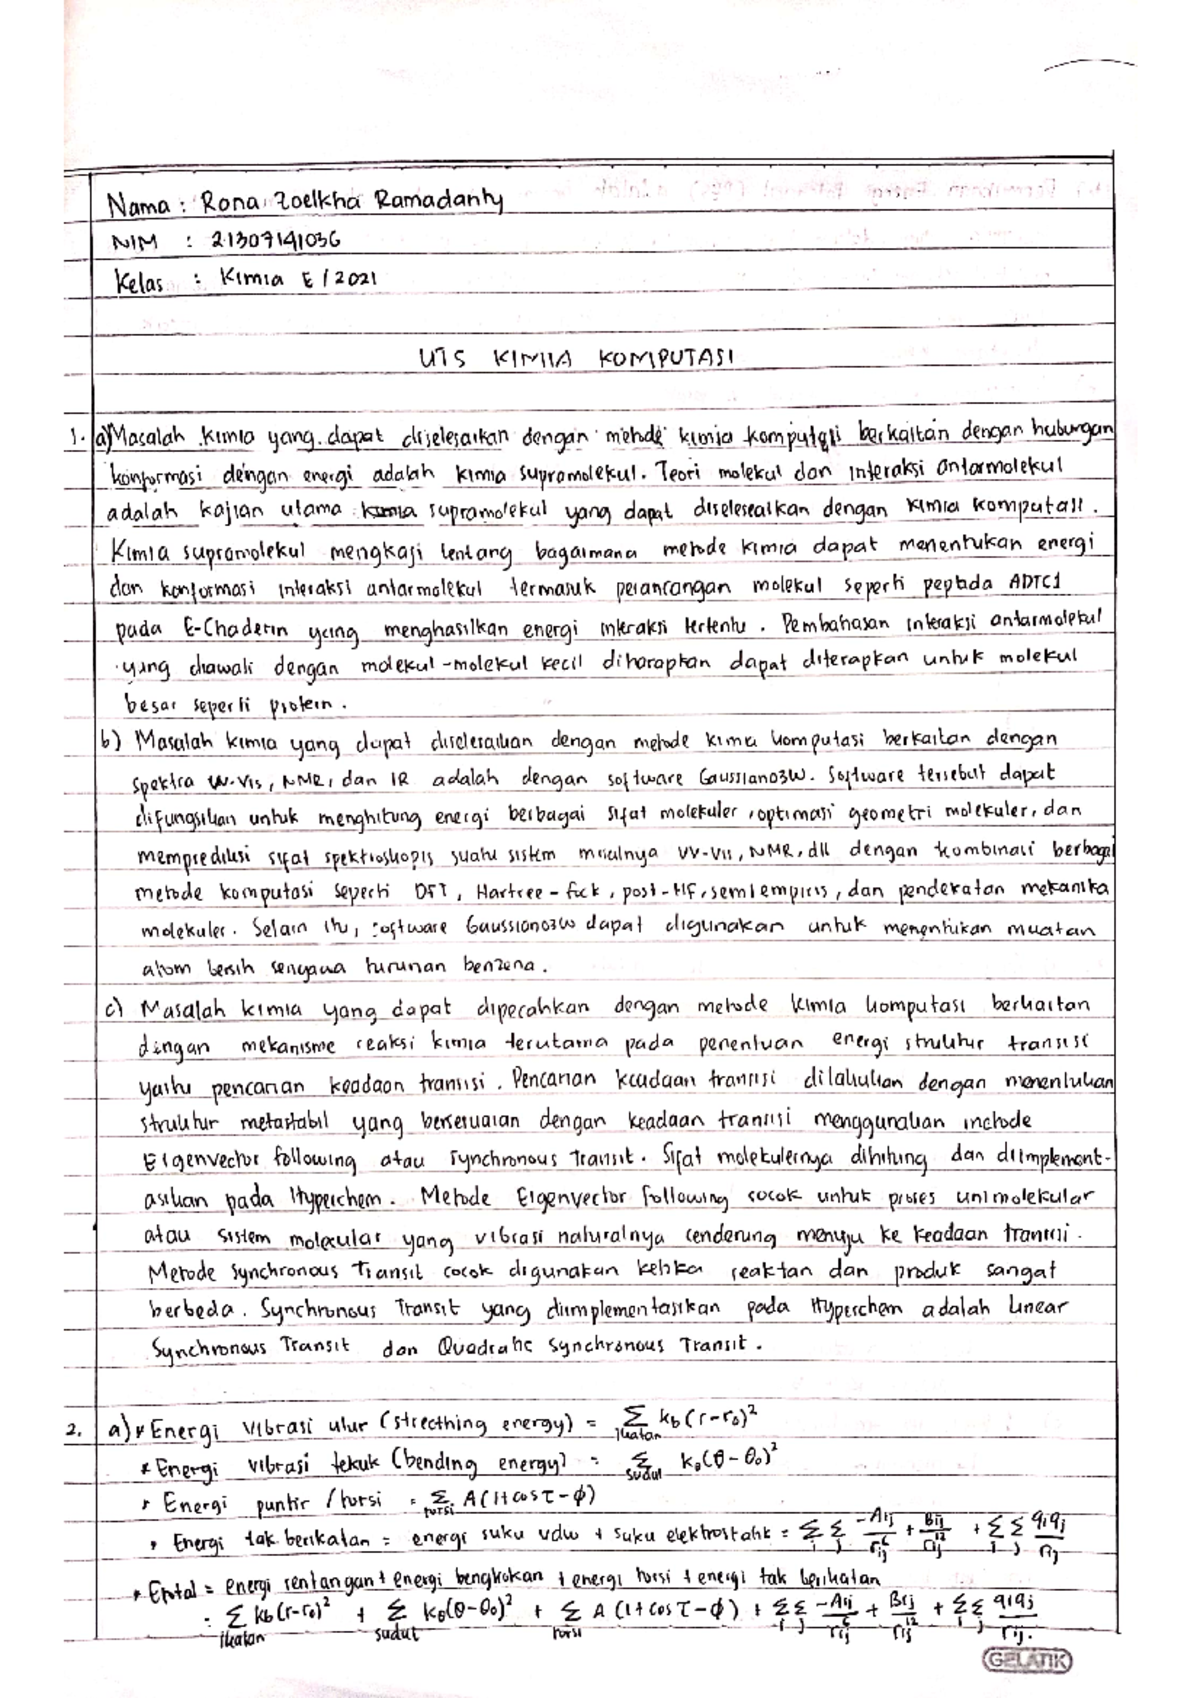 Nama : Rona Zoelkha Ramadanty
NIM : 21307141036
Kelas : Kimia E / 2021
UTS KIMIA KOMPUTASI
1. a) Masalah kimia yang dapat diselesaikan dengan metode kimia komputasi berkaitan dengan hubungan
konformasi dengan energi adalah kimia supramolekul. Teori molekul dan interaksi antarmolekul
adalah kajian utama kimia supramolekul yang dapat diselesaikan dengan kimia komputasi.
Kimia supramolekul mengkaji tentang bagaimana metode kimia dapat menentukan energi
dan konformasi interaksi antarmolekul termasuk perancangan molekul seperti peptida ADTC1
pada E-Chaderin yang menghasilkan energi interaksi tertentu. Pembahasan interaksi antarmolekul
yang diawali dengan molekul-molekul kecil diharapkan dapat diterapkan untuk molekul
besar seperti protein.
b) Masalah kimia yang dapat diselesaikan dengan metode kimia komputasi berkaitan dengan
spektra UV-Vis, NMR, dan IR adalah dengan software Gaussian03W. Software tersebut dapat
difungsikan untuk menghitung energi berbagai sifat molekuler, optimasi geometri molekuler, dan
memprediksi sifat spektroskopis suatu sistem misalnya UV-Vis, NMR, dll dengan kombinasi berbagai
metode komputasi seperti DFT, Hartree-fock, post-HF, semiempiris, dan pendekatan mekanika
molekuler. Selain itu, software Gaussian03W dapat digunakan untuk menentukan muatan
atom bersih senyawa turunan benzena.
c) Masalah kimia yang dapat dipecahkan dengan metode kimia komputasi berkaitan
dengan mekanisme reaksi kimia terutama pada penentuan energi struktur transisi
yaitu pencarian keadaan transisi. Pencarian keadaan transisi dilakukan dengan menentukan
struktur metastabil yang bersesuaian dengan keadaan transisi menggunakan metode
Eigenvector following atau synchronous Transit. Sifat molekulernya dihitung dan diimplement-
asikan pada Hyperchem. Metode Eigenvector following cocok untuk proses unimolekular
atau sistem molekular yang vibrasi naturalnya cenderung menuju ke keadaan transisi.
Metode synchronous Transit cocok digunakan ketika reaktan dan produk sangat
berbeda. Synchronous Transit yang diimplementasikan pada Hyperchem adalah Linear
Synchronous Transit dan Quadratic Synchronous Transit.
2. a) * Energi vibrasi ulur (strecthing energy) = Σ ikatan kb (r-r₀)²
* Energi vibrasi tekuk (bending energy) = Σ sudut kθ (θ - θ₀)²
* Energi puntir / torsi = Σ torsi A (1+cos τ - φ)
* Energi tak berikatan = energi suku vdw + suku elektrostatik = Σi Σj -Aij/rij⁶ + Bij/rij¹² + Σi Σj qiqj/rij
* Etotal = energi rentangan + energi bengkokan + energi torsi + energi tak berikatan
= Σ ikatan kb (r-r₀)² + Σ sudut kθ (θ-θ₀)² + Σ torsi A (1+cos τ - φ) + Σi Σj -Aij/rij⁶ + Bij/rij¹² + Σi Σj qiqj/rij.
GELATIK